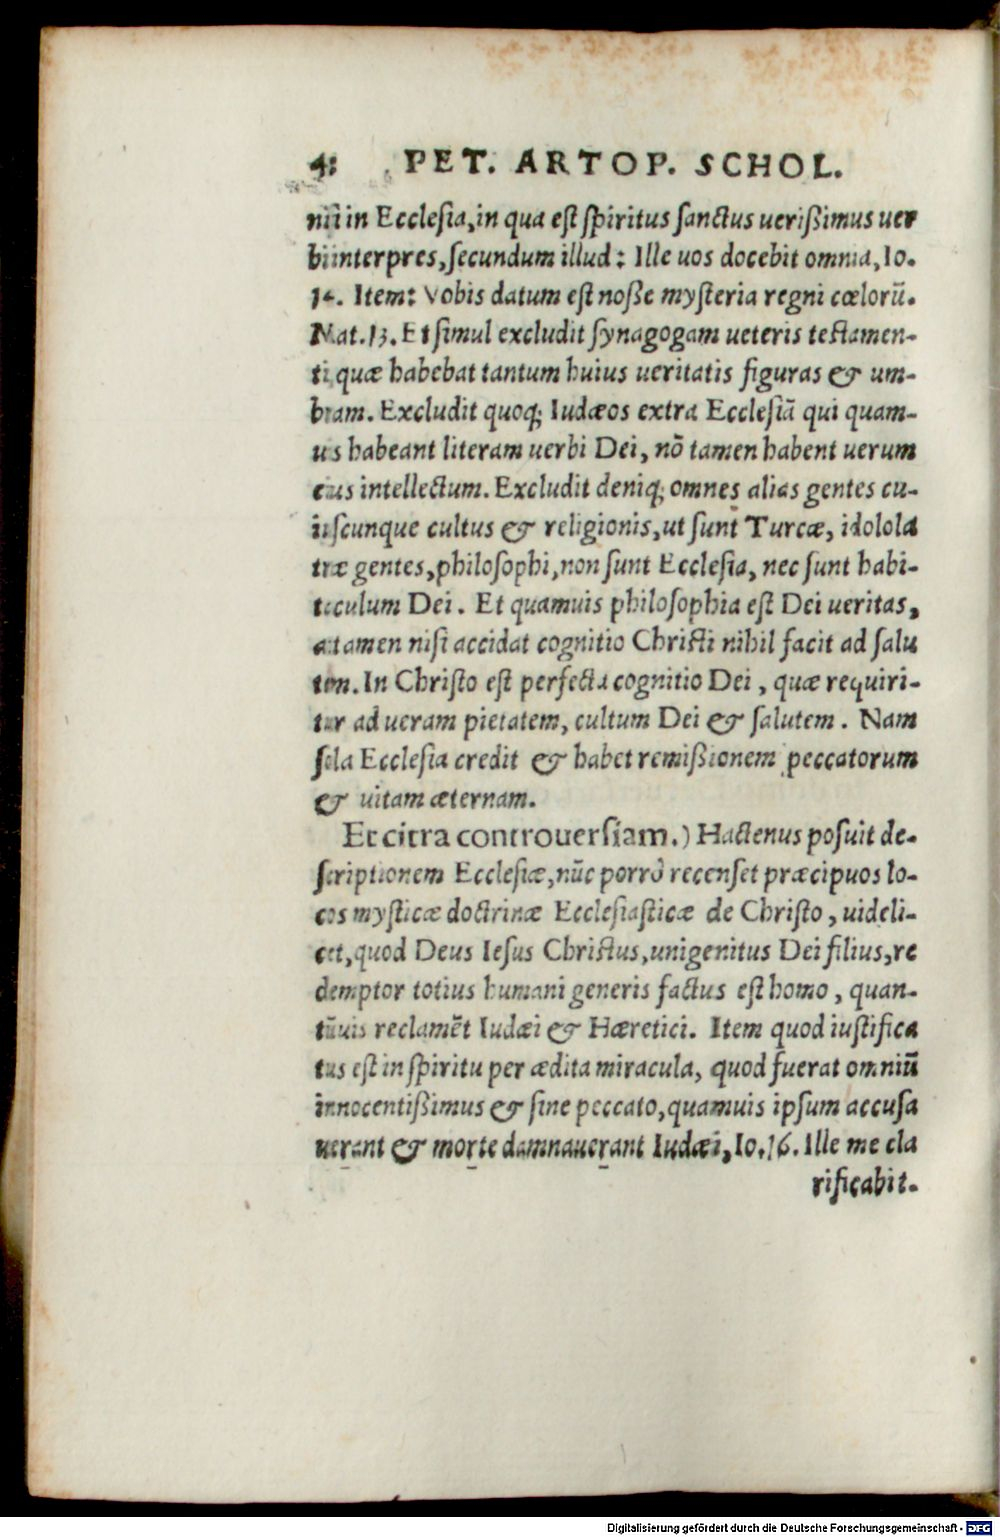 4: PET. ARTOP. SCHOL.
nij in Ecclesia, in qua est spiritus sanctus uerißimus uer
bi interpres, secundum illud: Ille uos docebit omnia, Io.
14. Item: Vobis datum est noße mysteria regni cœlorũ.
Mat. 13. Et simul excludit synagogam ueteris testamen-
ti, quæ habebat tantum huius ueritatis figuras & um-
bram. Excludit quoq; Iudæos extra Ecclesiã qui quam-
uis habeant literam uerbi Dei, nõ tamen habent uerum
eius intellectum. Excludit deniq; omnes alias gentes cu-
iuscunque cultus & religionis, ut sunt Turcæ, idolola
træ gentes, philosophi, non sunt Ecclesia, nec sunt habi-
taculum Dei. Et quamuis philosophia est Dei ueritas,
attamen nisi accidat cognitio Christi nihil facit ad salu
tem. In Christo est perfecta cognitio Dei, quæ requiri-
tur ad ueram pietatem, cultum Dei & salutem. Nam
sola Ecclesia credit & habet remißionem peccatorum
& uitam æternam.
Et citra controuersiam.) Hactenus posuit de-
scriptionem Ecclesiæ, nũc porrò recenset præcipuos lo-
cos mysticæ doctrinæ Ecclesiasticæ de Christo, uideli-
cet, quod Deus Iesus Christus, unigenitus Dei filius, re
demptor totius humani generis factus est homo, quan-
tũuis reclamẽt Iudæi & Hæretici. Item quod iustifica
tus est in spiritu per ædita miracula, quod fuerat omniũ
innocentißimus & sine peccato, quamuis ipsum accusa
uerant & morte damnauerant Iudæi, Io. 16. Ille me cla
rificabit.
Digitalisierung gefördert durch die Deutsche Forschungsgemeinschaft - DFG